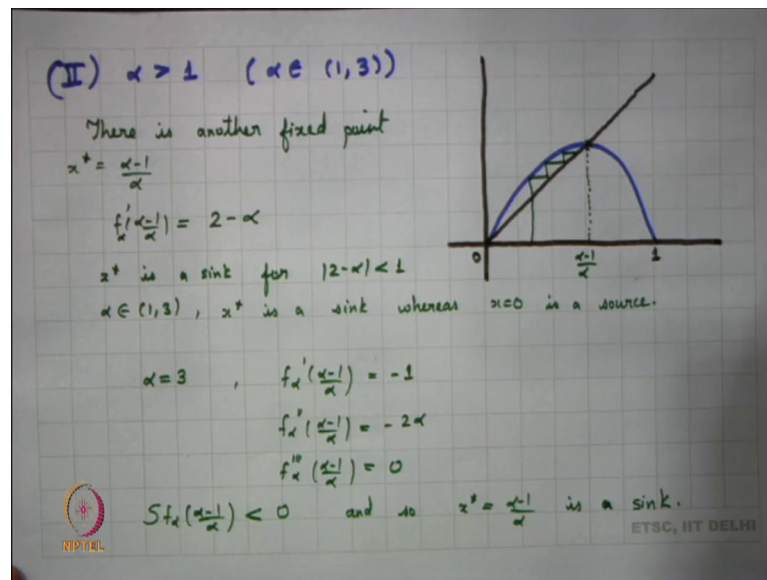 (II) α > 1 (α ∈ (1, 3))
There is another fixed point
x* = α-1/α
fα'(α-1/α) = 2 - α
x* is a sink for |2-α| < 1
α ∈ (1,3), x* is a sink whereas x=0 is a source.
0 α-1/α 1
α = 3 , fα'(α-1/α) = -1
fα''(α-1/α) = -2α
fα'''(α-1/α) = 0
Sfα(α-1/α) < 0 and so x* = α-1/α is a sink.
NPTEL
ETSC, IIT DELHI